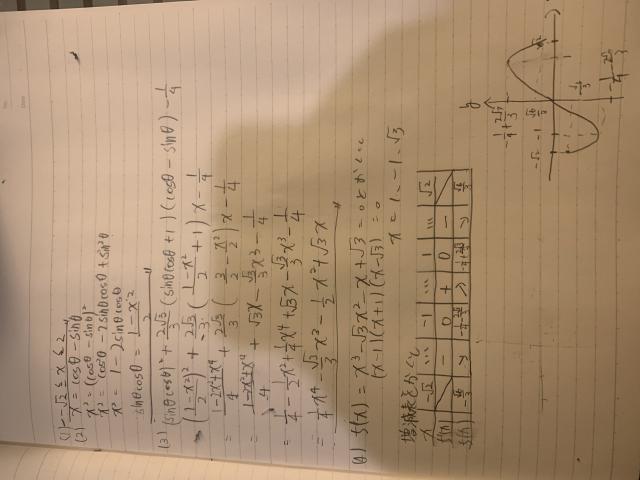 (1) -√2 ≦ x ≦ √2
(2) x = cosθ - sinθ
x² = (cosθ - sinθ)²
x² = cos²θ - 2sinθcosθ + sin²θ
x² = 1 - 2sinθcosθ
sinθcosθ = (1-x²)/2
(3) (sinθcosθ)² + 2√3/3 (sinθcosθ + 1)(cosθ - sinθ) - 1/4
((1-x²)/2)² + 2√3/3 ((1-x²)/2 + 1) x - 1/4
= (1-2x²+x⁴)/4 + 2√3/3 (3/2 - x²/2) x - 1/4
= (1-2x²+x⁴)/4 + √3x - √3/3 x³ - 1/4
= 1/4 - 1/2 x² + 1/4 x⁴ + √3x - √3/3 x³ - 1/4
= 1/4 x⁴ - √3/3 x³ - 1/2 x² + √3x
(4) f'(x) = x³ - √3x² - x + √3 = 0とおくと
(x-1)(x+1)(x-√3) = 0
x = 1, -1, √3
増減表をかくと
x -√2 … -1 … 1 … √2
f'(x) - 0 + 0 -